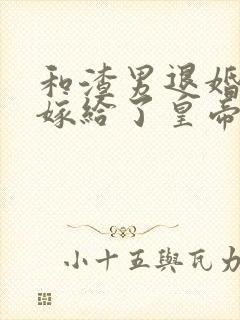 和渣男退婚
嫁给了皇帝
小十五與瓦力